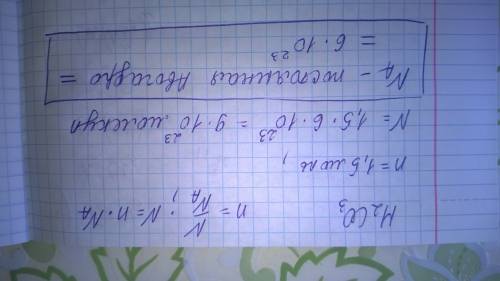 H₂CO₃ n = N/N_A ; N = n · N_A
n = 1,5 моль ,
N = 1,5 · 6 · 10²³ = 9 · 10²³ молекул
N_A – постоянная Авогадро =
= 6 · 10²³